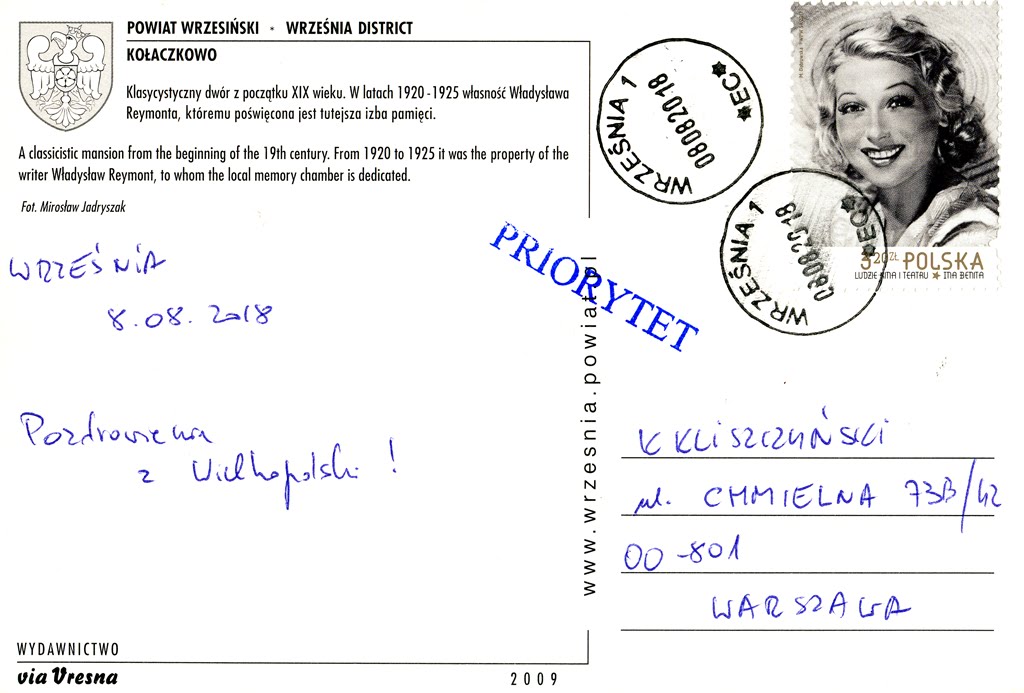 POWIAT WRZESIŃSKI * WRZEŚNIA DISTRICT
KOŁACZKOWO
Klasycystyczny dwór z początku XIX wieku. W latach 1920 -1925 własność Władysława
Reymonta, któremu poświęcona jest tutejsza izba pamięci.
A classicistic mansion from the beginning of the 19th century. From 1920 to 1925 it was the property of the
writer Władysław Reymont, to whom the local memory chamber is dedicated.
Fot. Mirosław Jadryszak
WRZEŚNIA
8.08.2018
Pozdrowienia
z Wielkopolski !
WYDAWNICTWO
via Vresna
2009
www.wrzesnia.powiat.pl
PRIORYTET
WRZEŚNIA 1
080820-18
*EC*
WRZEŚNIA 1
080820-18
*EC*
3,20 ZŁ POLSKA
LUDZIE KINA I TEATRU * INA BENITA
K KLISZCZYŃSKI
ul. CHMIELNA 73B/42
00-801
WARSZAWA